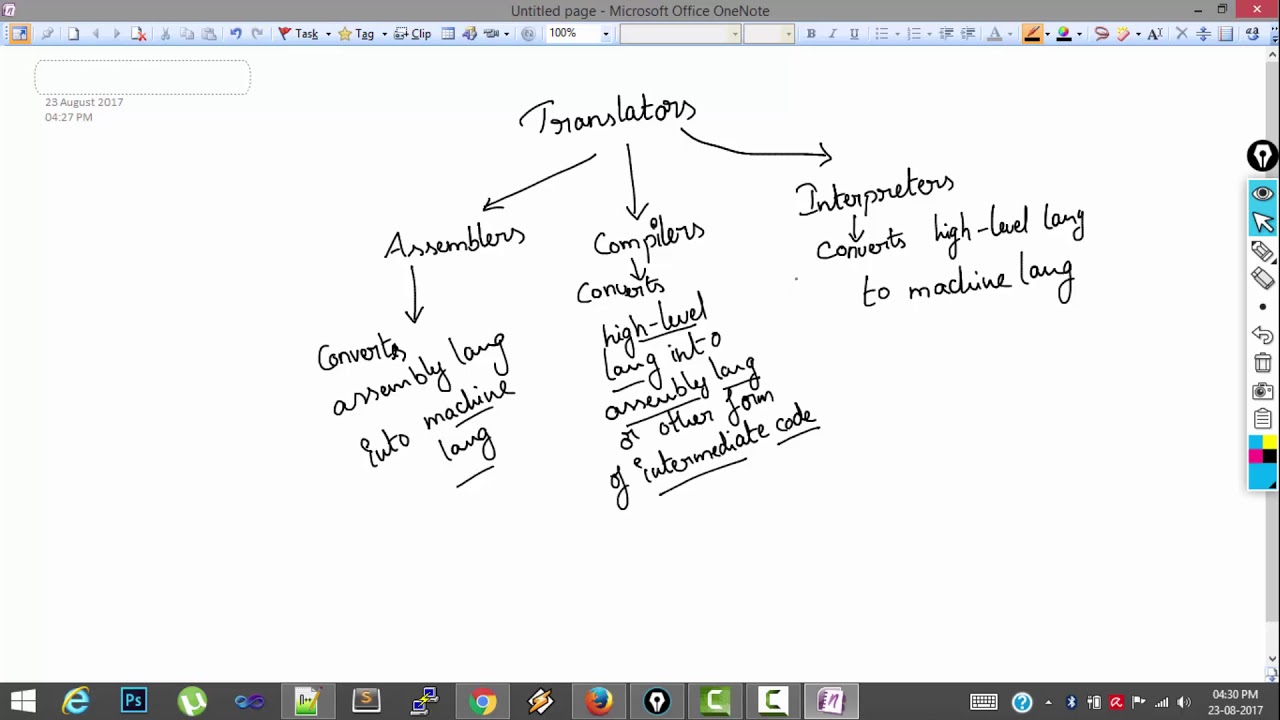 Untitled page - Microsoft Office OneNote
Task
Tag
Clip
100%
B I U
23 August 2017
04:27 PM
Translators
Assemblers
Converts
assembly lang
into machine
lang
Compilers
Converts
high-level
lang into
assembly lang
or other form
of intermediate code
Interpreters
Converts high-level lang
to machine lang
Ps
S
04:30 PM
23-08-2017